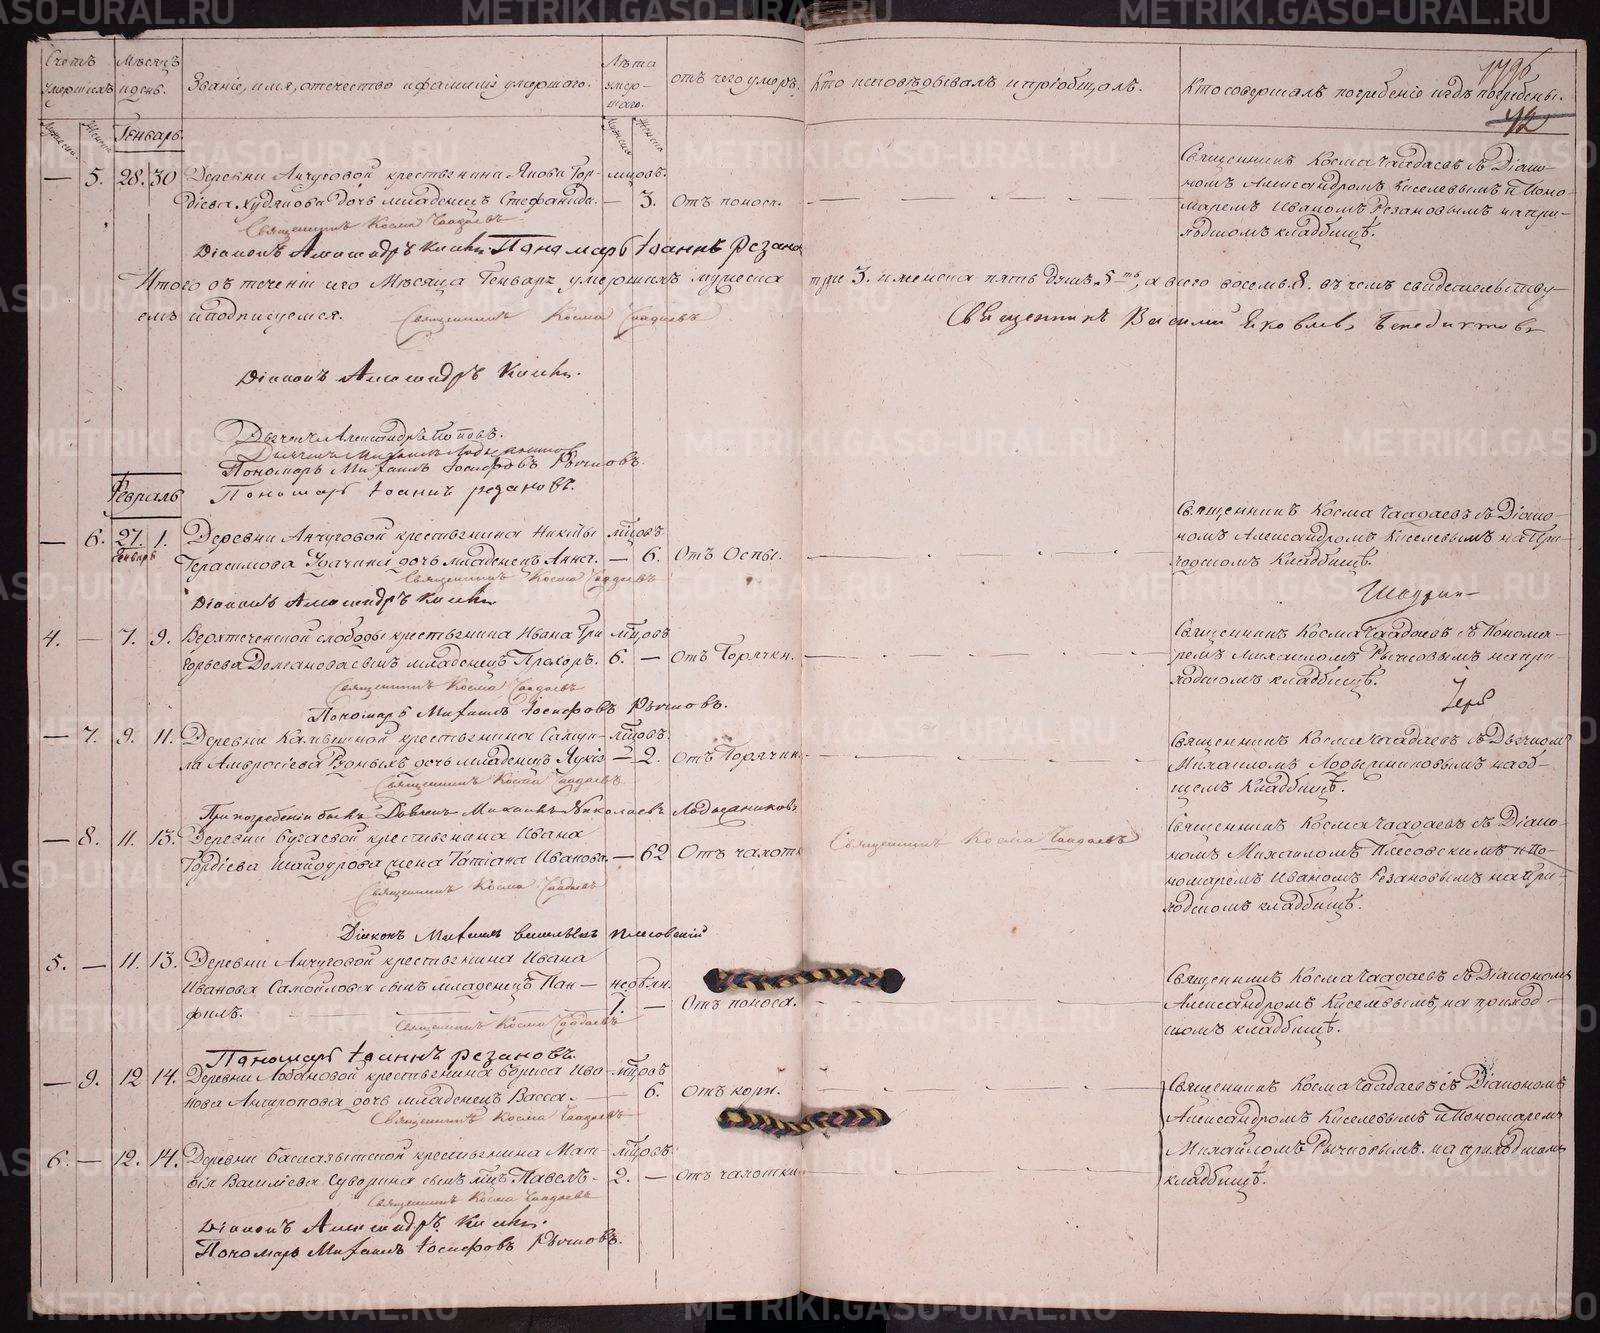 Счетъ умершихъ
Мѣсяцъ и день.
Званіе, имя, отечество и фамилія умершаго.
Лѣта умершаго.
отъ чего умеръ.
Кто исповѣдывалъ и пріобщалъ.
Кто совершалъ погребеніе и гдѣ погребены.
Генварь
— 5. 28. 30 Деревни Анчуговой крестьянина Якова Гор- мцовъ.
дѣева Худякова дочь младенецъ Стефанида. — 3. Отъ поноса.
Священникъ Косма Чаадаевъ съ Діако-
номъ Александромъ Киселевымъ и Поно-
маремъ Иваномъ Резановымъ на при-
ходскомъ кладбищѣ.
Священникъ Косма Чаадаевъ
Діаконъ Александръ Пономарь Іоаннъ Резано
Итого въ теченіи сего Мѣсяца Генваря умершихъ мужеска три 3. и женска пять душъ 5, а всего восемь 8. въ чемъ свидетельству-
емъ и подписуемся. Священникъ Косма Чаадаевъ
Священникъ Василий Яковлевъ Бенедиктовъ
Діаконъ Александръ
Дьячекъ Александръ Поповъ.
Дьячекъ Михаилъ
Пономарь Михаилъ Іосифовъ Рычковъ.
Пономарь Іоаннъ Резановъ.
Февраль
— 6. 27. Генваря 1. Деревни Анчуговой крестьянина Никиты мцовъ.
Герасимова Удачина дочь младенецъ Анна. — 6. Отъ Оспы.
Священникъ Косма Чаадаевъ съ Діако-
номъ Александромъ Киселевымъ на При-
ходскомъ Кладбищѣ.
Священникъ Косма Чаадаевъ
Діаконъ Александръ
4. — 7. 9. Верхтеченской слободы крестьянина Ивана Гри мцовъ
горьева Долганова сынъ младенецъ Прохоръ. 6. — Отъ Горячки.
Священникъ Косма Чаадаевъ съ Понома-
ремъ Михаиломъ Рычковымъ на при-
ходскомъ кладбищѣ.
Священникъ Косма Чаадаевъ
Пономарь Михаилъ Іосифовъ Рычковъ.
— 7. 9. 11. Деревни крестьянина Самуи- мцовъ.
ла Амвросіева дочь младенецъ — 2. Отъ Горячки
Священникъ Косма Чаадаевъ съ Дьячкомъ
Михаиломъ на об-
щемъ Кладбищѣ.
Священникъ Косма Чаадаевъ
При погребеніи былъ Дьячекъ Михаилъ Николаевъ
— 8. 11. 13. Деревни Бугаевой крестьянина Ивана
Гордѣева Шайдурова жена Татіана Иванова. — 62 Отъ чахотк
Священникъ Косма Чаадаевъ
Священникъ Косма Чаадаевъ съ Діако-
номъ Михаиломъ Плесовскимъ и По-
номаремъ Иваномъ Резановымъ на При-
ходскомъ кладбищѣ.
Священникъ Косма Чаадаевъ
Діаконъ Михаилъ Плесовскій
5. — 11. 13. Деревни Анчуговой крестьянина Ивана
Иванова Самойлова сынъ младенецъ Пан- недѣли.
филъ. 1. — Отъ поноса.
Священникъ Косма Чаадаевъ съ Діакономъ
Александромъ Киселевымъ, на приход-
скомъ кладбищѣ.
Священникъ Косма Чаадаевъ
Пономарь Іоаннъ Резановъ.
— 9. 12 14. Деревни Лобановой крестьянина Бориса Ива- мцовъ
нова Антропова дочь младенецъ Васса. — 6. Отъ кори.
Священникъ Косма Чаадаевъ
6. — 12. 14. Деревни крестьянина Мат- мцовъ.
вія Василіева Суворина сынъ млцъ Павелъ. 2. — Отъ чахотки
Священникъ Косма Чаадаевъ съ Діакономъ
Александромъ Киселевымъ и Пономаремъ
Михайломъ Рычковымъ. на приходскомъ
кладбищѣ.
Священникъ Косма Чаадаевъ
Діаконъ Александръ
Пономарь Михаилъ Іосифовъ Рычковъ.
METRIKI.GASO-URAL.RU